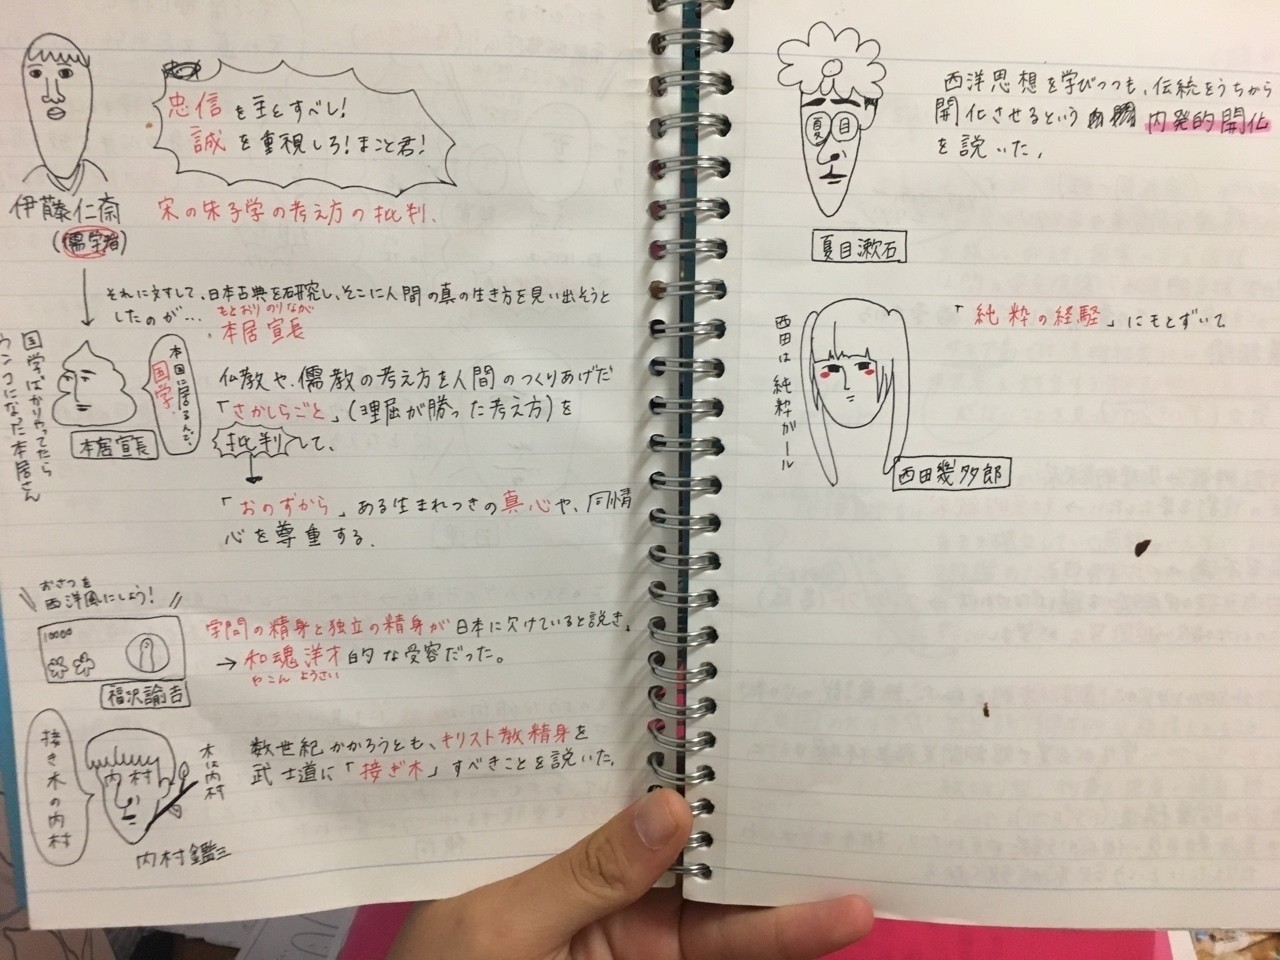 忠信を主とすべし!
誠を重視しろ!まこと君!
伊藤仁斎
(儒学者)
宋の朱子学の考え方の批判.
それに対して、日本古典を研究し、そこに人間の真の生き方を見い出そうと
したのが…
もとおりのりなが
本居宣長
国学ばかりやってたら
ウンコになった本居さん
本国に学るんで、
国学.
本居宣長
仏教や、儒教の考え方を人間のつくりあげだ
「さかしらごと」(理屈が勝った考え方)を
批判して、
「おのずから」ある生まれつきの真心や、同情
心を尊重する.
おさつを
西洋風にしよう!
10000
福沢諭吉
学問の精身と独立の精身が日本に欠けていると説き、
→和魂洋才的な受容だった。
やこん ようさい
接ぎ木の内村
内村
木は内村
内村鑑三
数世紀かかろうとも、キリスト教精身を
武士道に「接ぎ木」すべきことを説いた.
夏目
夏目漱石
西洋思想を学びつつも、伝統をうちから
開化させるという 内発的開化
を説いた.
西田は純粋ガール
西田幾多郎
「純粋の経験」にもとずいて